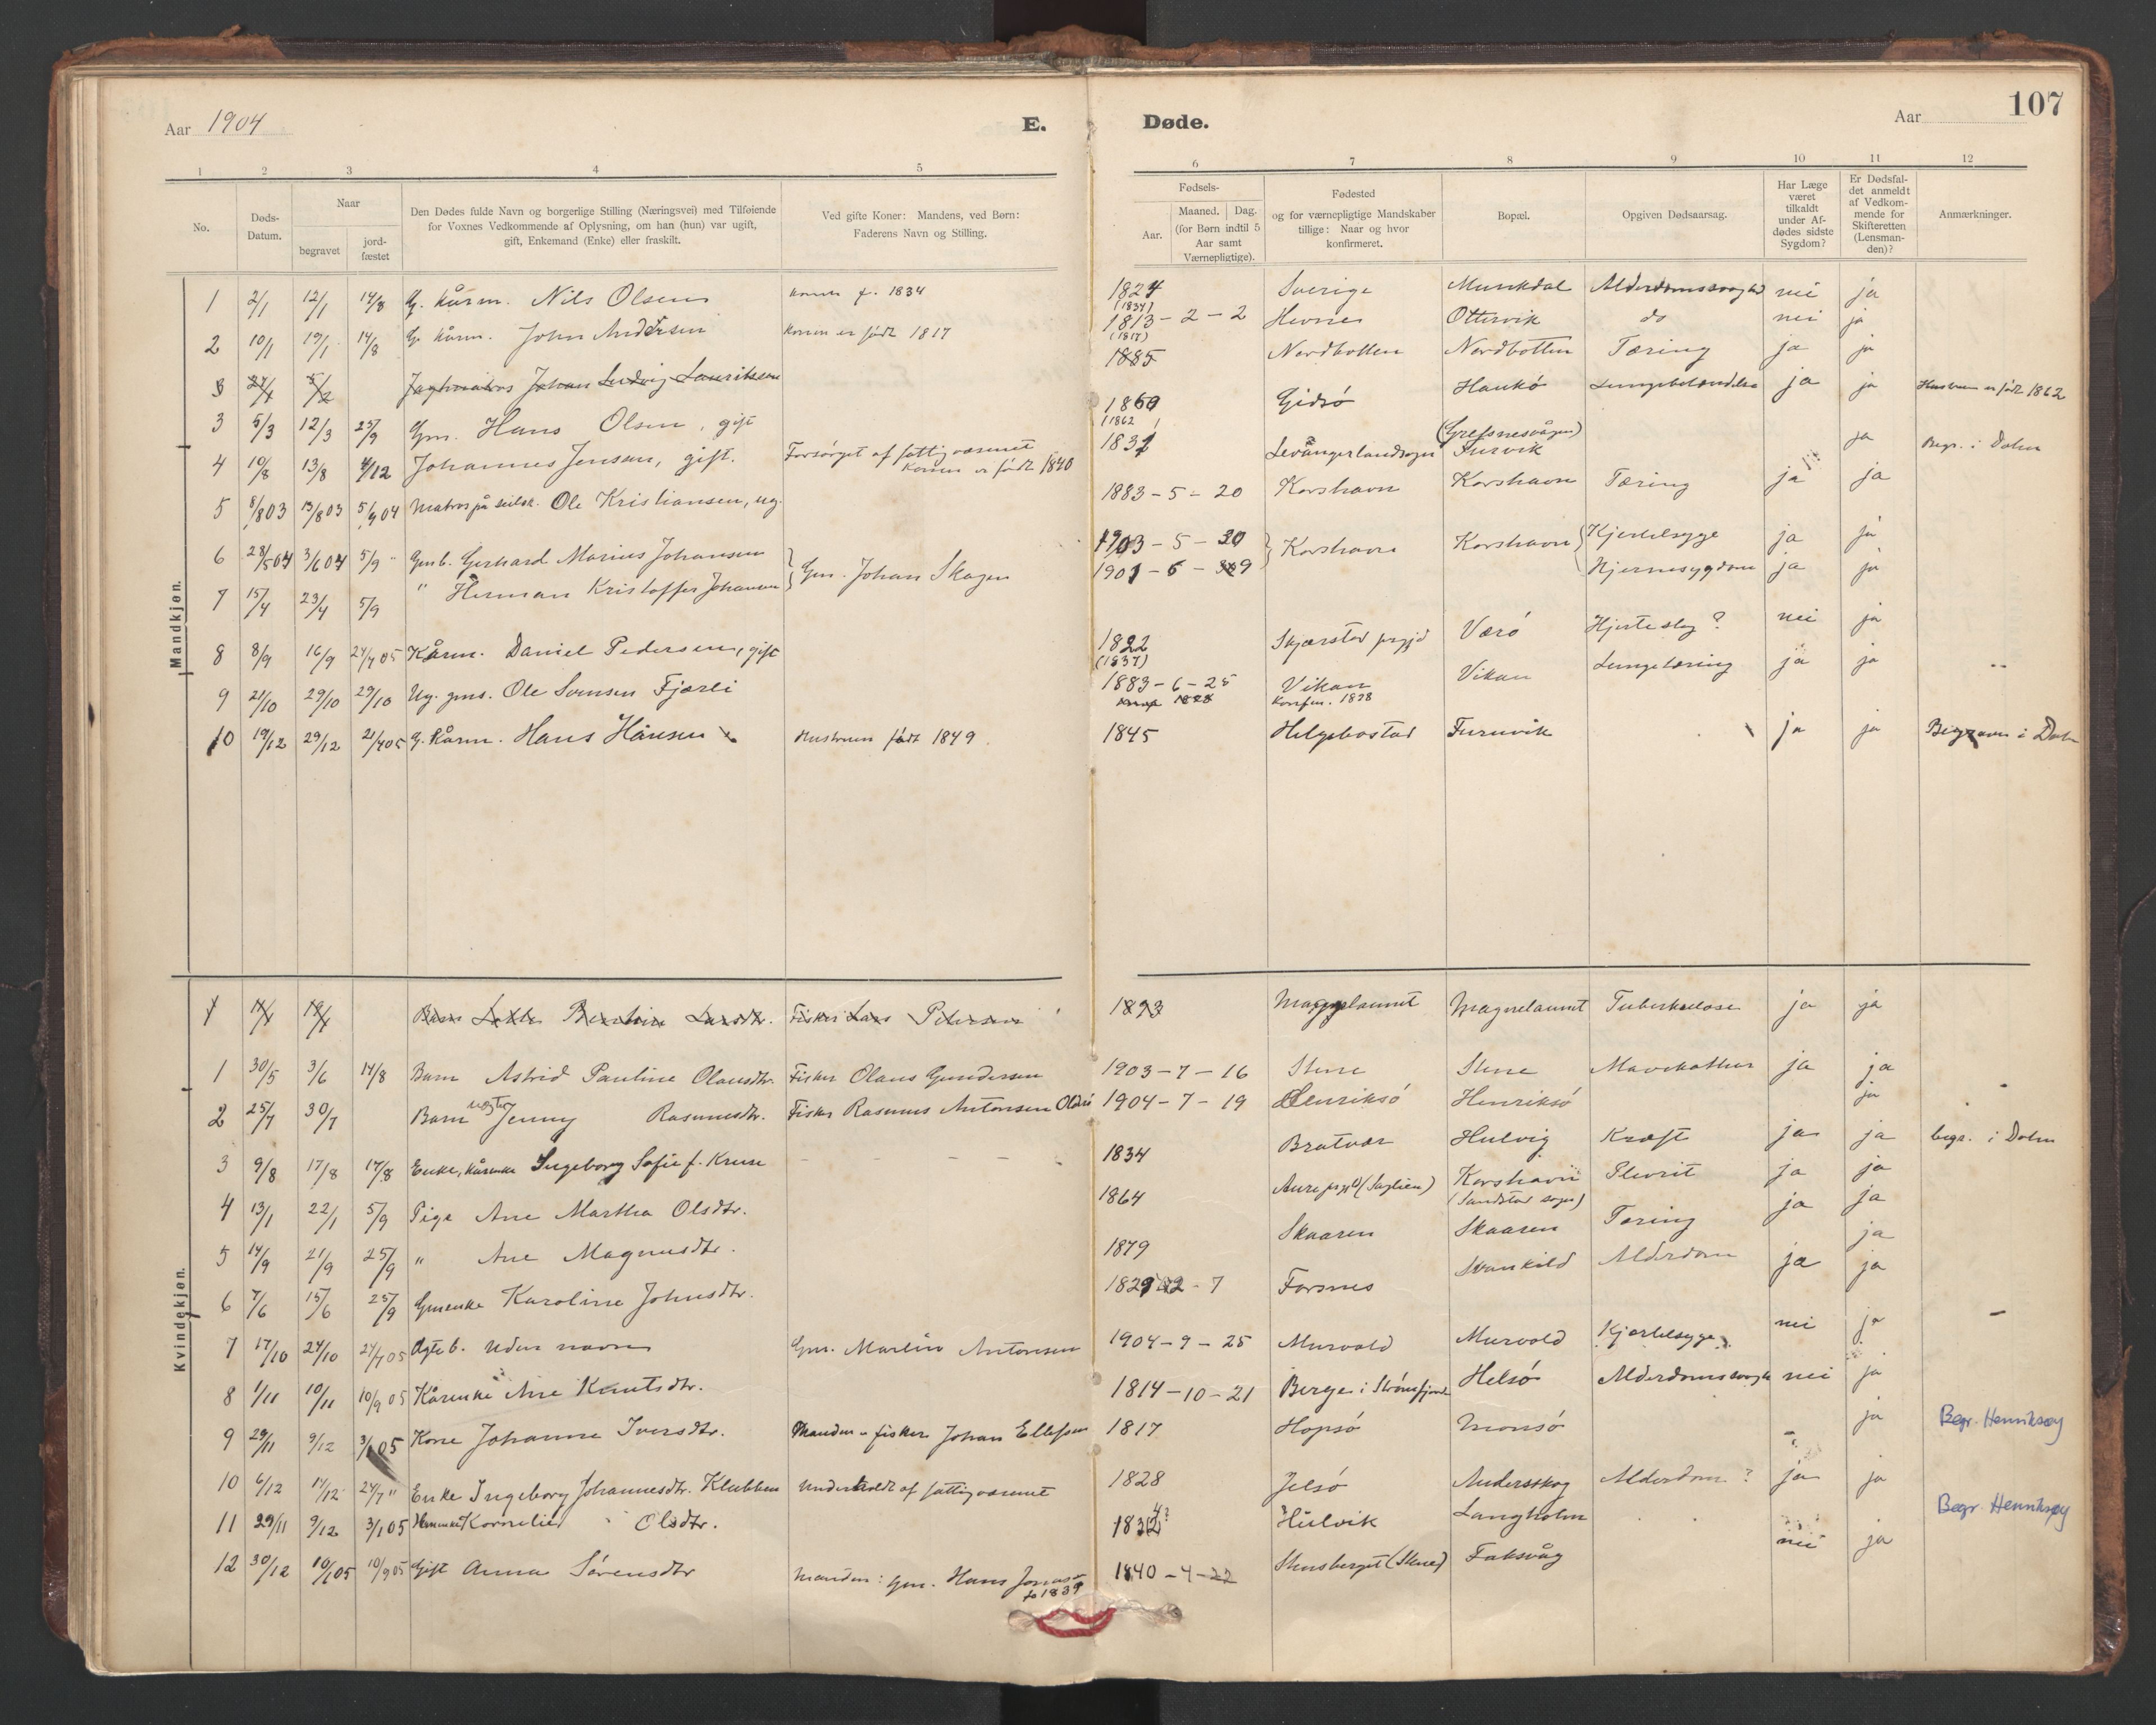 Aar 1904 E. Døde. Aar 107
1 2 3 4 5 6 7 8 9 10 11 12
No. Døds-Datum. Naar begravet jord-fæstet Den Dødes fulde Navn og borgerlige Stilling (Næringsvei) med Tilføiende for Voxnes Vedkommende af Oplysning, om han (hun) var ugift, gift, Enkemand (Enke) eller fraskilt. Ved gifte Koner: Mandens, ved Børn: Faderens Navn og Stilling. Fødsels- Aar. Maaned. Dag. (for Børn indtil 5 Aar samt Værnepligtige). Fødested og for værnepligtige Mandskaber tillige: Naar og hvor konfirmeret. Bopæl. Opgiven Dødsaarsag. Har Læge været tilkaldt under Afdødes sidste Sygdom? Er Dødsfaldet anmeldt af Vedkommende for Skifteretten (Lensmanden)? Anmærkninger.
Mandkjøn.
1 2/1 12/1 14/8 G. kårm. Nils Olsen konen f. 1834 1824 (1834) Sverige Munkdal Alderdomssvaghd nei ja
2 10/1 19/1 14/8 G. kårm. John Andersen konen er født 1817 1813 - 2 - 2 (1817) Hevne Ottervik do nei ja
3 27/1 5/2 Johan Ludvig Lauritsen 1885 Nordbotten Nordbotten Tæring ja ja
3 5/3 12/3 25/9 Gm. Hans Olsen, gift 1860 (1862 Gidsö Haukö Lungebetændelse ja ja Hustruen er født 1862
4 10/8 13/8 4/12 Johannes Jensen, gift. Forsørget af fattigvæsenet Konen er født 1840 1831 Levangerlandsogn (Grefsnesvågen) Furvik ja Begr. i Dolm
5 8/8 03 13/8 03 5/9 04 Matros på seilsk. Ole Kristiansen, ug. 1883 - 5 - 20 Korshavn Korshavn Tæring ja ja
6 28/5 04 3/6 04 5/9 " Gmb. Gerhard Marius Johansen } Gm. Johan Skagen 1903 - 5 - 30 } Korshavn Korshavn { Kjertelsyge ja ja
7 15/4 23/4 5/9 " Herman Kristoffer Johansen 1901 - 6 - 9 Hjernesygdom ja ja
8 8/9 16/9 24/7 05 Kårm. Daniel Pedersen, gift 1822 (1837) Skjærstad prgjd Værö Hjerteslag? nei ja
9 21/10 29/10 29/10 Ug. gms. Ole Svensen Fjærli 1883 - 6 - 25 Vikan Konfirm. 1898 Vikan Lungetæring ja ja
10 19/12 29/12 21/4 05 G. kårm. Hans Hansen Hustruen født 1849 1845 Helgebostad Furuvik ja ja Begraven i Dolm
Kvindekjøn.
1 Barn Bentine Larsdtr. Fisker Lars Petersen 1893 Magerelaunet Tuberkulose ja ja
1 30/5 3/6 14/8 Barn Astrid Pauline Olausdtr. Fisker Olaus Gundersen 1903 - 7 - 16 Stene Stene Mavekathar ja ja
2 25/7 30/7 Barn uegte Jenny Rasmusdtr. Fisker Rasmus Antonsen 1904 - 7 - 19 Henriksö Henriksö ja
3 9/8 17/8 17/8 Enke, kårenke Ingeborg Sofie f. Kruse - - - - - 1834 Bratvær Hulvig Kræft ja ja begr. i Dolm
4 13/1 22/1 5/9 Pige Ane Martha Olsdtr. 1864 Aure prgjd Korshavn (Sandstad sogn) Plevrit ja ja
5 14/9 21/9 25/9 " Ane Magnusdtr. 1879 Skaaren Skaaren Tæring ja ja
6 7/6 15/6 25/9 Gmenke Karoline Johnsdtr. 1829 - 12 - 7 Forsnes Svankild Alderdom ja ja ja
7 17/10 24/10 24/7 05 Ægte b. uden navn Gm. Martin Antonsen 1904 - 9 - 25 Murvold Murvold Kjertelsyge nei ja -
8 1/11 10/11 10/9 05 Kårenke Ane Knutsdtr. 1814 - 10 - 21 Berge i Strömsfjord Helsö Alderdomssvaghd nei ja
9 29/11 9/12 3/1 05 Kone Johanne Iversdtr. Manden - fisker Johan Ellefsen 1817 Hopsö Monsö - ja Begr. Henriksøy
10 6/12 14/12 24/7 " Enke Ingeborg Johannesdtr. Klubben Underholdt af fattigvæsenet 1828 Jelsö Andersskog Alderdom? ja ja
11 29/11 9/12 3/1 05 Kornelie Olsdtr. 1832 Hulvik Langholm Begr Henriksøy
12 30/12 10/1 05 10/9 05 Gift Anna Sörensdtr Manden: gm. Hans Jonasen f. 1839 1840 - 4 - 22 Stensberget (Stene) Faksvåg nei ja